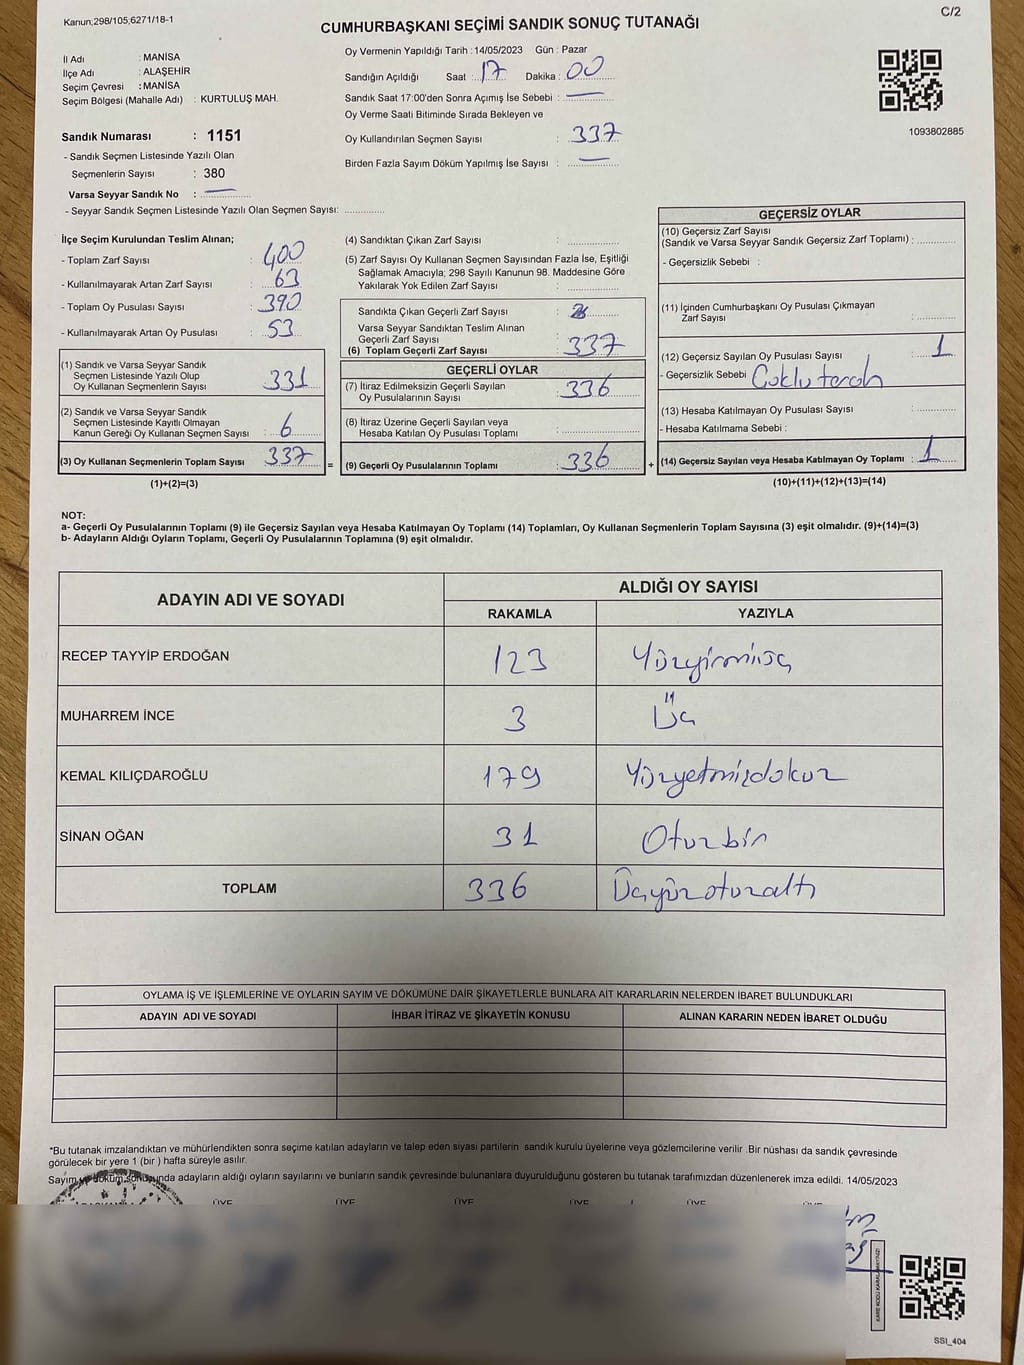 Kanun;298/105;6271/18-1
C/2
CUMHURBAŞKANI SEÇİMİ SANDIK SONUÇ TUTANAĞI
İl Adı : MANİSA
İlçe Adı : ALAŞEHİR
Seçim Çevresi : MANİSA
Seçim Bölgesi (Mahalle Adı) : KURTULUŞ MAH.
Sandık Numarası : 1151
- Sandık Seçmen Listesinde Yazılı Olan
Seçmenlerin Sayısı : 380
Varsa Seyyar Sandık No : —
- Seyyar Sandık Seçmen Listesinde Yazılı Olan Seçmen Sayısı: ..............
Oy Vermenin Yapıldığı Tarih : 14/05/2023 Gün : Pazar
Sandığın Açıldığı Saat : 17 Dakika : 00
Sandık Saat 17:00'den Sonra Açımış İse Sebebi : —
Oy Verme Saati Bitiminde Sırada Bekleyen ve
Oy Kullandırılan Seçmen Sayısı : 337
Birden Fazla Sayım Döküm Yapılmış İse Sayısı : —
1093802885
İlçe Seçim Kurulundan Teslim Alınan;
- Toplam Zarf Sayısı : 400
- Kullanılmayarak Artan Zarf Sayısı : 63
- Toplam Oy Pusulası Sayısı : 390
- Kullanılmayarak Artan Oy Pusulası : 53
(1) Sandık ve Varsa Seyyar Sandık
Seçmen Listesinde Yazılı Olup
Oy Kullanan Seçmenlerin Sayısı : 331
(2) Sandık ve Varsa Seyyar Sandık
Seçmen Listesinde Kayıtlı Olmayan
Kanun Gereği Oy Kullanan Seçmen Sayısı : 6
(3) Oy Kullanan Seçmenlerin Toplam Sayısı 337
(1)+(2)=(3)
(4) Sandıktan Çıkan Zarf Sayısı : ..............
(5) Zarf Sayısı Oy Kullanan Seçmen Sayısından Fazla İse, Eşitliği
Sağlamak Amacıyla; 298 Sayılı Kanunun 98. Maddesine Göre
Yakılarak Yok Edilen Zarf Sayısı : ..............
Sandıkta Çıkan Geçerli Zarf Sayısı :
Varsa Seyyar Sandıktan Teslim Alınan
Geçerli Zarf Sayısı :
(6) Toplam Geçerli Zarf Sayısı : 337
GEÇERLİ OYLAR
(7) İtiraz Edilmeksizin Geçerli Sayılan
Oy Pusulalarının Sayısı : 336
(8) İtiraz Üzerine Geçerli Sayılan veya
Hesaba Katılan Oy Pusulası Toplamı : ..............
= (9) Geçerli Oy Pusulalarının Toplamı : 336 +
GEÇERSİZ OYLAR
(10) Geçersiz Zarf Sayısı
(Sandık ve Varsa Seyyar Sandık Geçersiz Zarf Toplamı) : ..............
- Geçersizlik Sebebi :
(11) İçinden Cumhurbaşkanı Oy Pusulası Çıkmayan
Zarf Sayısı : ..............
(12) Geçersiz Sayılan Oy Pusulası Sayısı : 1
- Geçersizlik Sebebi Çoklu tercih
(13) Hesaba Katılmayan Oy Pusulası Sayısı : ..............
- Hesaba Katılmama Sebebi :
(14) Geçersiz Sayılan veya Hesaba Katılmayan Oy Toplamı : 1
(10)+(11)+(12)+(13)=(14)
NOT:
a- Geçerli Oy Pusulalarının Toplamı (9) ile Geçersiz Sayılan veya Hesaba Katılmayan Oy Toplamı (14) Toplamları, Oy Kullanan Seçmenlerin Toplam Sayısına (3) eşit olmalıdır. (9)+(14)=(3)
b- Adayların Aldığı Oyların Toplamı, Geçerli Oy Pusulalarının Toplamına (9) eşit olmalıdır.
ADAYIN ADI VE SOYADI ALDIĞI OY SAYISI
RAKAMLA YAZIYLA
RECEP TAYYİP ERDOĞAN 123 Yüzyirmiüç
MUHARREM İNCE 3 Üç
KEMAL KILIÇDAROĞLU 179 Yüzyetmişdokuz
SİNAN OĞAN 31 Oturbir
TOPLAM 336 Üçyüzoturaltı
OYLAMA İŞ VE İŞLEMLERİNE VE OYLARIN SAYIM VE DÖKÜMÜNE DAİR ŞİKAYETLERLE BUNLARA AİT KARARLARIN NELERDEN İBARET BULUNDUKLARI
ADAYIN ADI VE SOYADI İHBAR İTİRAZ VE ŞİKAYETİN KONUSU ALINAN KARARIN NEDEN İBARET OLDUĞU
*Bu tutanak imzalandıktan ve mühürlendikten sonra seçime katılan adayların ve talep eden siyasi partilerin sandık kurulu üyelerine veya gözlemcilerine verilir .Bir nüshası da sandık çevresinde
görülecek bir yere 1 (bir ) hafta süreyle asılır.
Sayım ve döküm sonucunda adayların aldığı oyların sayılarını ve bunların sandık çevresinde bulunanlara duyurulduğunu gösteren bu tutanak tarafımızdan düzenlenerek imza edildi. 14/05/2023
ÜYE ÜYE ÜYE ÜYE ÜYE ÜYE
SSI_404